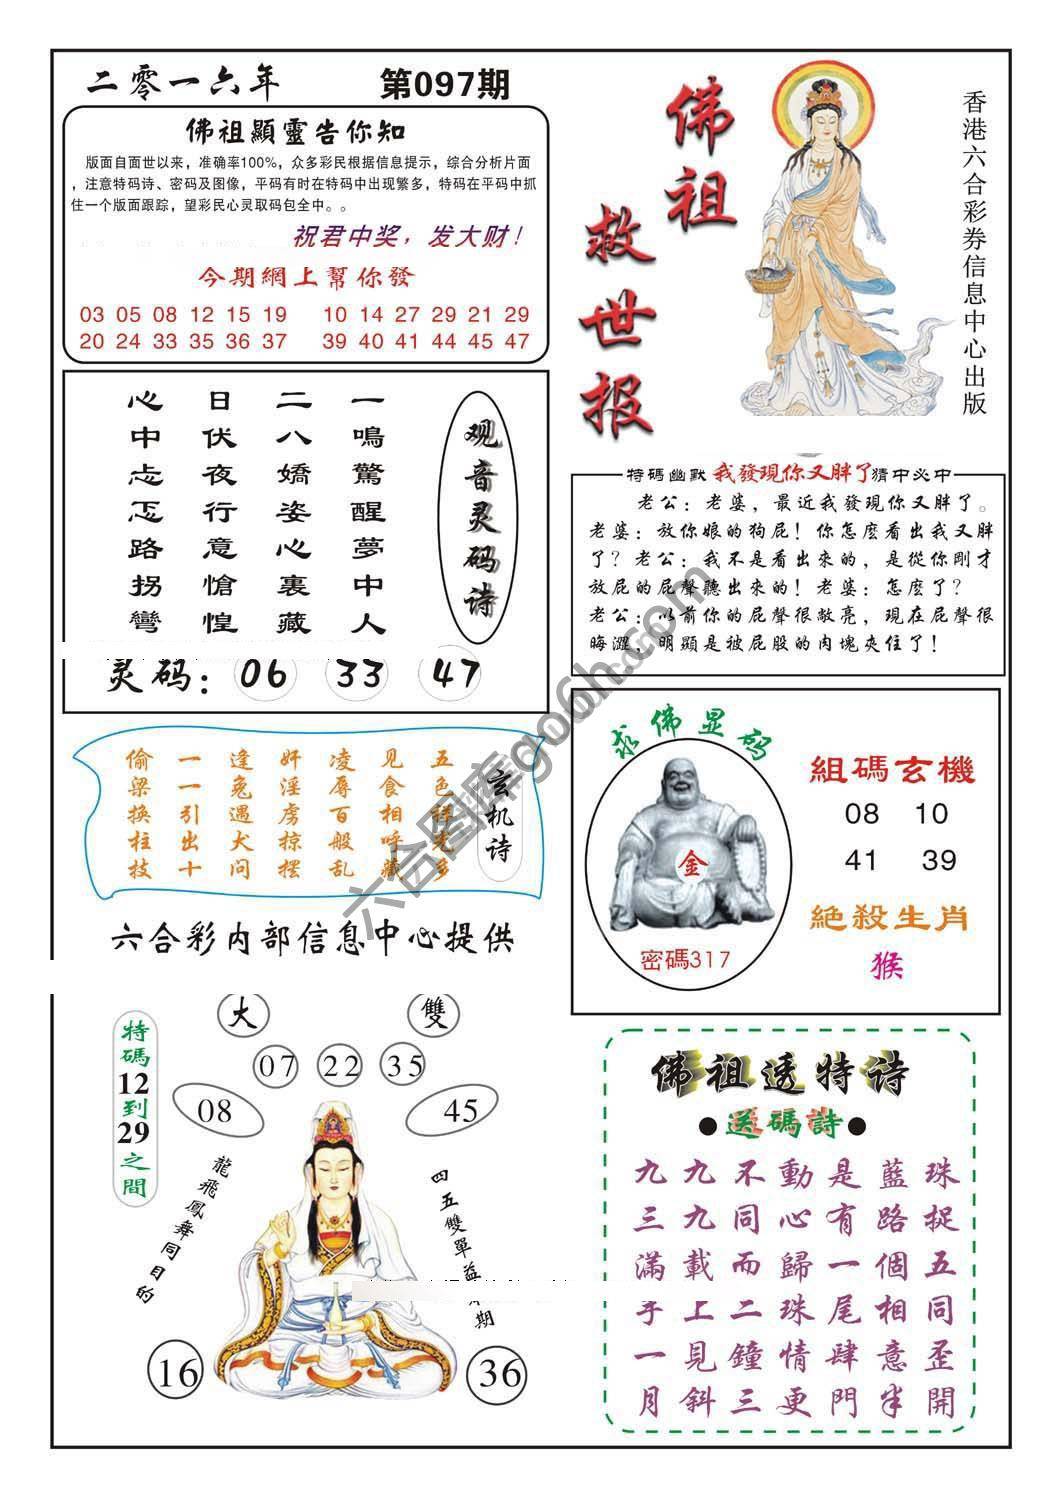 二零一六年 第097期
佛祖顯靈告你知
版面自面世以来，准确率100%，众多彩民根据信息提示，综合分析片面
，注意特码诗、密码及图像，平码有时在特码中出现繁多，特码在平码中抓
住一个版面跟踪，望彩民心灵取码包全中。。
祝君中奖，发大财！
今期網上幫你發
03 05 08 12 15 19 10 14 27 29 21 29
20 24 33 35 36 37 39 40 41 44 45 47
佛祖救世报
香港六合彩券信息中心出版
观音灵码诗
一鳴驚醒夢中人
二八嬌姿心裏藏
日伏夜行意愴惶
心中忐忑路拐彎
灵码：06 33 47
特碼幽默 我發現你又胖了 猜中必中
老公：老婆，最近我發現你又胖了。
老婆：放你娘的狗屁！你怎麽看出我又胖
了？老公：我不是看出來的，是從你剛才
放屁的屁聲聽出來的！老婆：怎麽了？
老公：以前你的屁聲很敞亮，現在屁聲很
晦澀，明顯是被屁股的肉塊夾住了！
玄机诗
五色祥光多
见食相呼藏
凌辱百般乱
奸淫虏掠摆
逢兔遇犬问
一一引出十
偷梁换柱技
六合彩内部信息中心提供
求佛显码
金
密碼317
組碼玄機
08 10
41 39
絕殺生肖
猴
大 雙
07 22 35
08 45
特碼12到29之間
龍飛鳳舞同目的
四五雙單益 期
16 36
佛祖透特诗
●送碼詩●
九九不動是藍珠
三九同心有路捉
滿載而歸一個五
手上二珠尾相同
一見鐘情肆意歪
月斜三更門半開
六合图库go66h.com